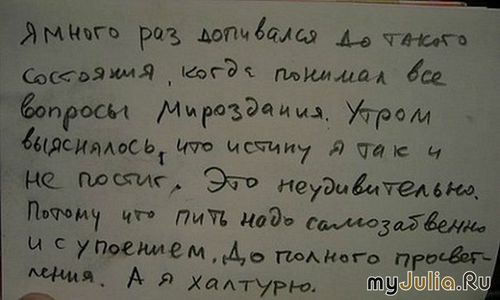 Я много раз допивался до такого
состояния, когда понимал все
вопросы Мироздания. Утром
выяснялось, что истину я так и
не постиг. Это неудивительно.
Потому что пить надо самозабвенно
и с упоением. До полного просвет-
ления. А я халтурю.
myJulia.Ru